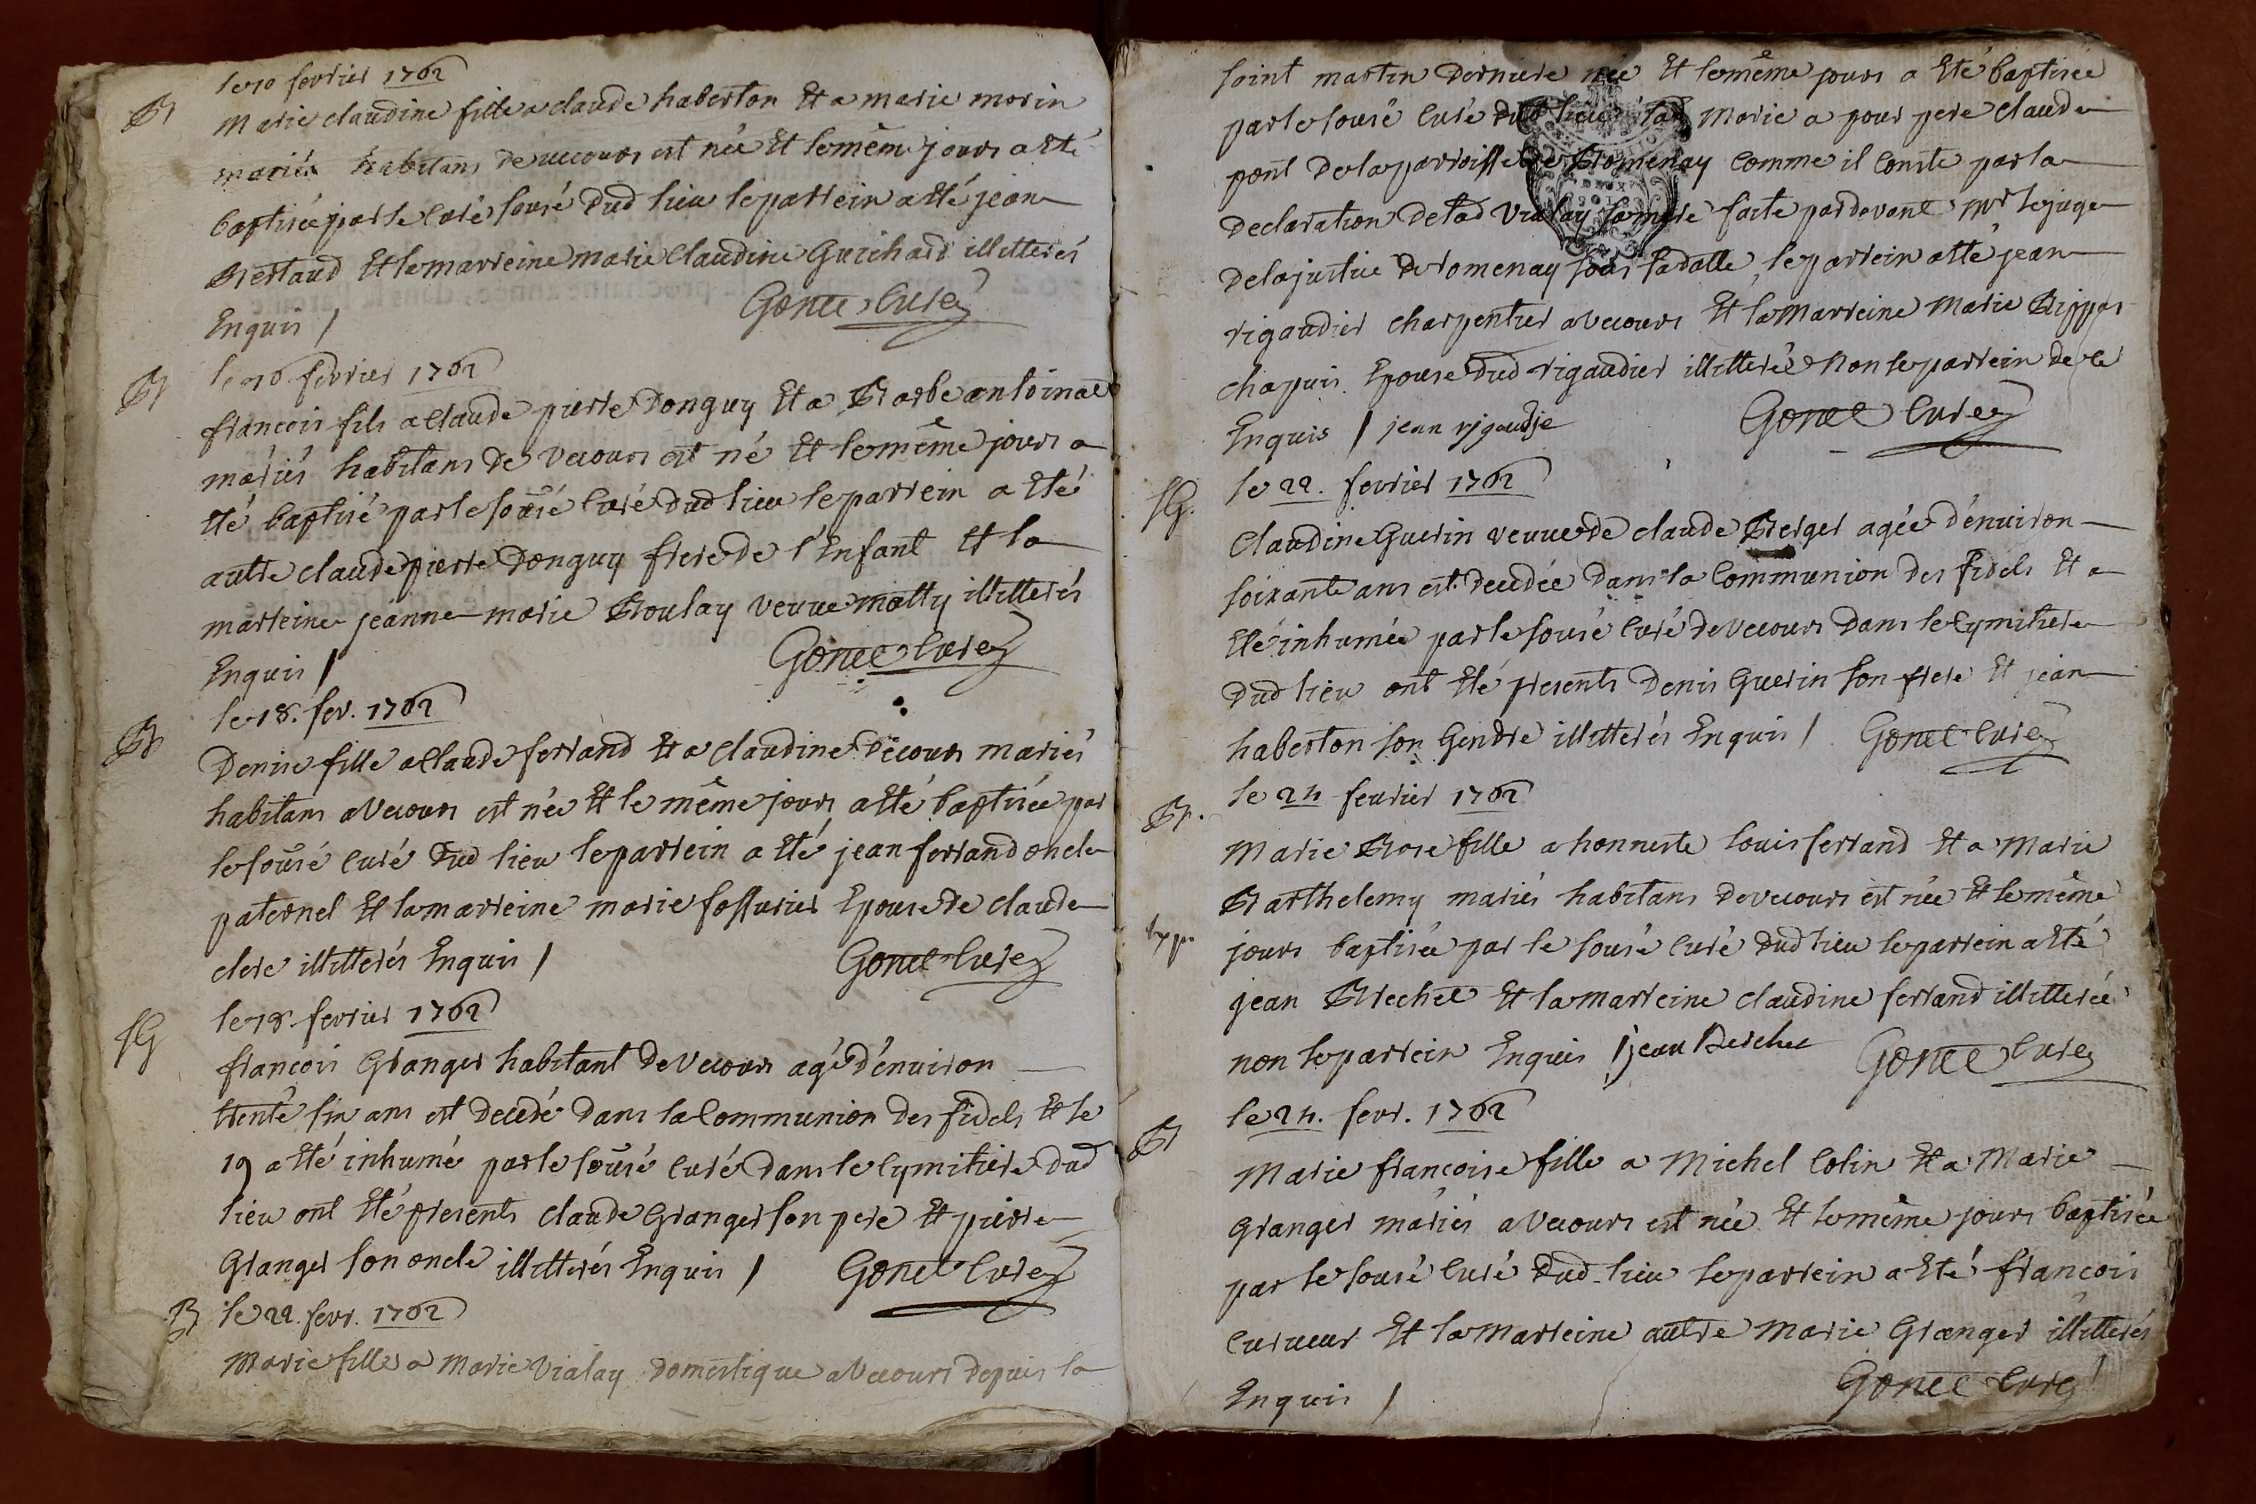 B
le 10 fevrier 1762
Marie claudine fille a claude haberton Et a marie morin
mariés habitans de vecours est née Et le même jours a Eté
baptisée par le curé sousé dud lieu le parrein a Eté jean
Bertaud Et la marreine marie Claudine Guichard illitterés
Enquis / Gonet curé
B
le 16 fevrier 1762
francois fils a Claude pierre Donguy Et a Barbe antoinat
mariés habitans de vecours est né Et le même jours a
Eté baptisé par le sousé curé dud lieu le parrein a Eté
autre claude pierre Donguy frere de l'Enfant Et la
marreine jeanne marie Boulay veuve matty illitterés
Enquis / Gonet curé
B
le 18. fev. 1762
Denise fille a Claude ferrand Et a Claudine Decours mariés
habitans a Vecours est née Et le même jours a Eté baptisée par
le sousé curé dud lieu le parrein a Eté jean ferrand oncle
paternel Et la marreine marie fossurier Epouse de claude
clere illitterés Enquis / Gonet curé
SG
le 18 fevrier 1762
francois Granger habitant de Vecours agé d'environ
trente six ans est decedé dans la Communion des fidels Et le
19 a Eté inhumé par le sousé curé dans le Cymitiere dud
lieu ont Eté presents claude Granger son pere Et pierre
Granger son oncle illitterés Enquis / Gonet curé
B le 22. fevr. 1762
Marie fille a Marie Vialay domestique a Vecours depuis la
saint martin derniere née Et le même jours a Eté baptisée
par le sousé curé dud lieu lad Marie a pour pere claude
pont de la parroisse de Romenay comme il conste par la
declaration de lad Vialay sa mere faite pardevant Mr le juge
de la justice de romenay sous sa datte, le parrein a Eté jean
rigaudier charpentier a vecours Et la marreine Marie
chapuis Epouse dud rigaudier illitterée Non le parrein de ce
Enquis / jean rjgaudje Gonet curé
SG.
le 22. fevrier 1762
Claudine Guerin veuve de claude Berger agée d'environ
soixante ans est decedée dans la Communion des fidels Et a
Eté inhumée par le sousé curé de Vecours dans le Cymitiere
dud lieu ont Eté presents Denis Guerin son frere Et jean
haberton son Gendre illitterés Enquis / Gonet curé
B.
le 24 fevrier 1762
Marie Rose fille a honneste Louis ferrand Et a Marie
Barthelemy mariés habitans de vecours est née Et le même
jours baptisée par le sousé curé dud lieu le parrein a Eté
jean Brechet Et la marreine claudine ferrand illitterée
non le parrein Enquis / jean Berchet Gonet curé
le 24. fevr. 1762
B
Marie francoise fille a Michel Colin Et a Marie
Granger mariés a Vecours est née Et le même jours baptisée
par le sousé curé dud lieu le parrein a Eté francois
Curveur Et la marreine autre Marie Granger illitterés
Enquis / Gonet curé